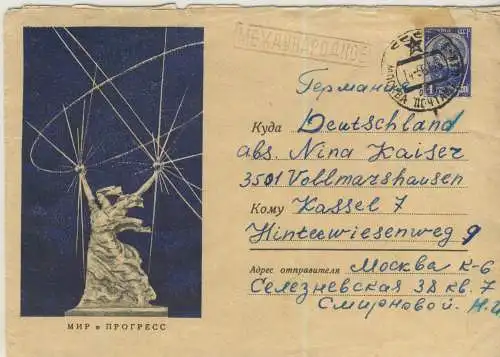 МЕЖДУНАРОДНОЕ
СССР
МОСКВА
Германия
Куда Deutschland
abs. Nina Kaiser
3501 Vollmarshausen
Кому Kassel 7
Hinterwiesenweg 9
Адрес отправителя Москва К-6
Селезневская 38 кв. 7
Смирновой Н.
МИР и ПРОГРЕСС